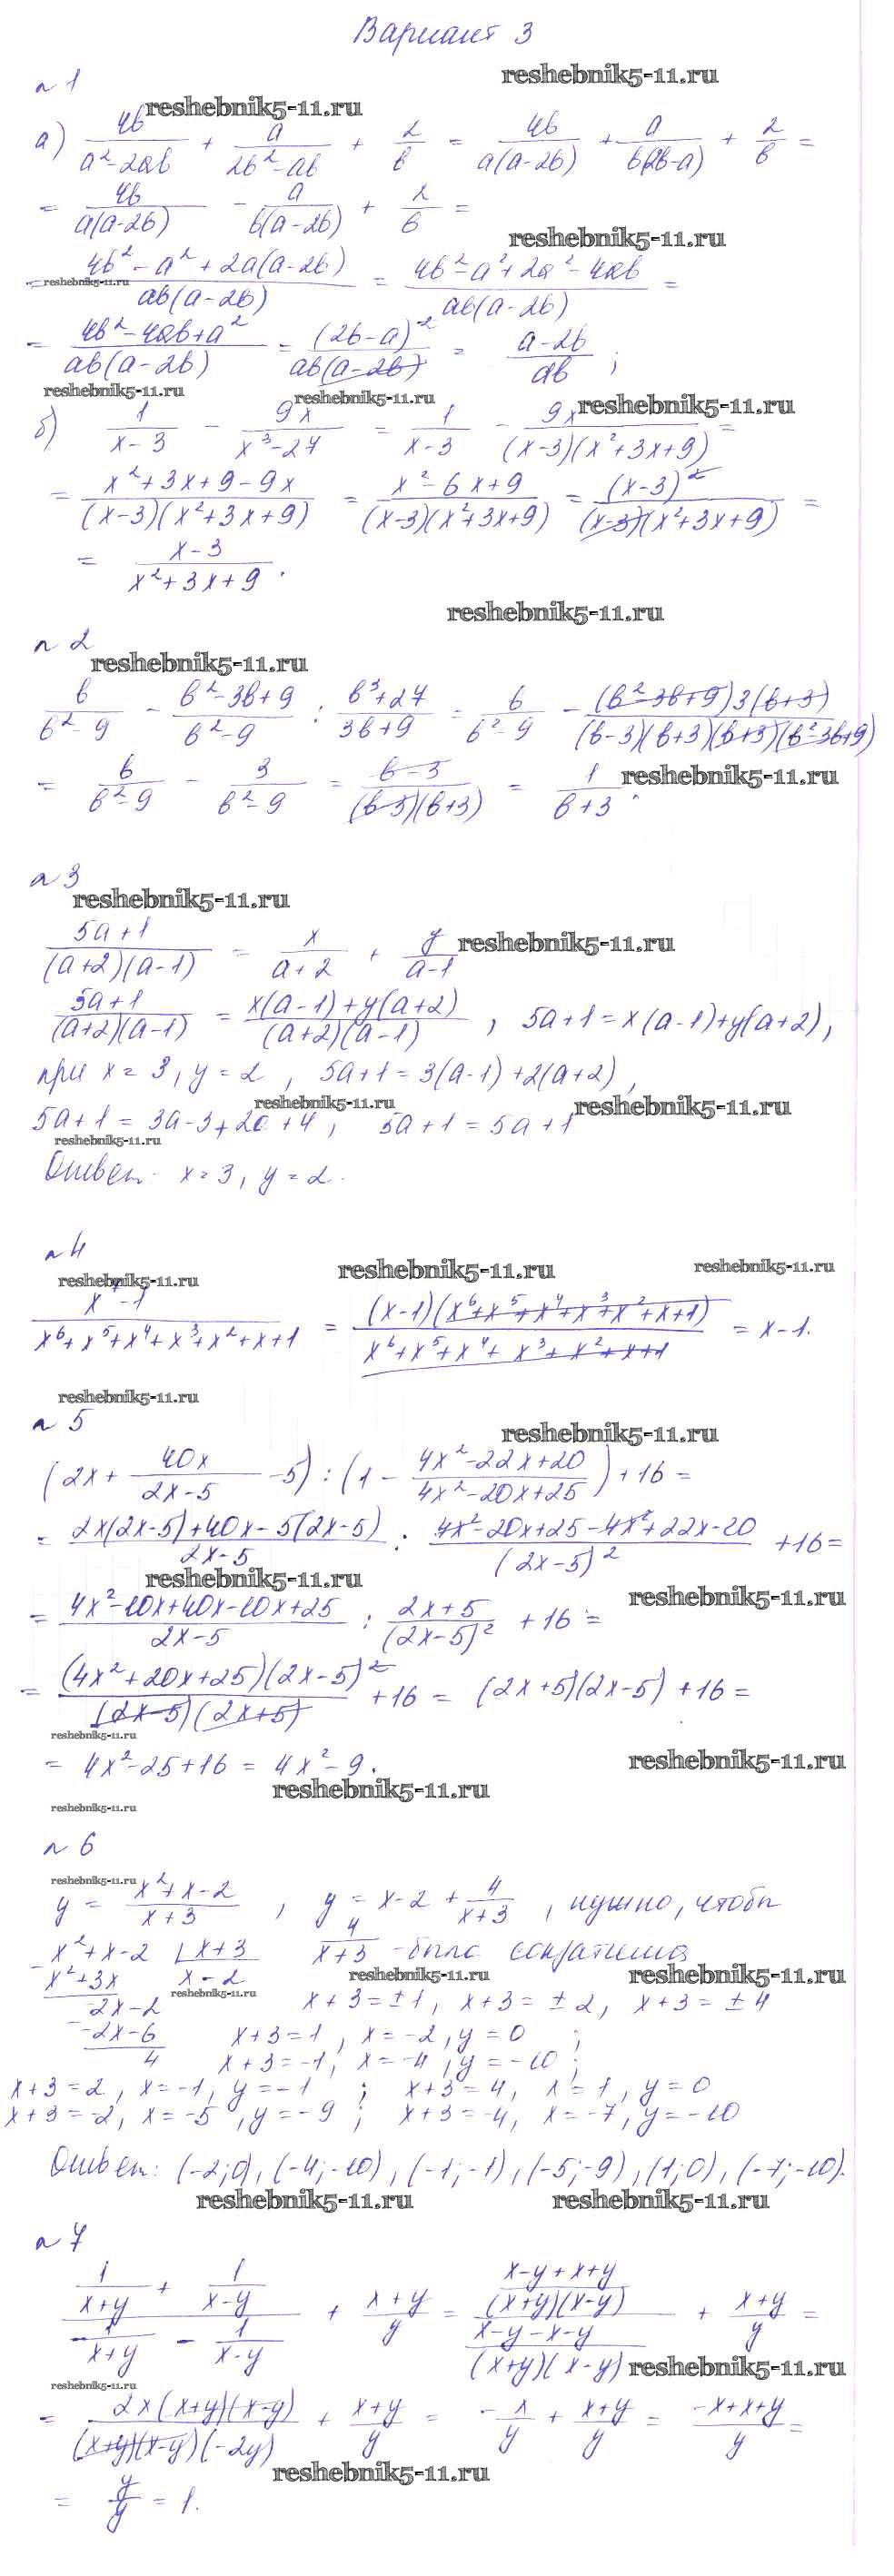 Вариант 3
n 1
reshebnik5-11.ru
reshebnik5-11.ru
а) 4b/(a²-2ab) + a/(2b²-ab) + 2/b = 4b/(a(a-2b)) + a/(b(2b-a)) + 2/b =
= 4b/(a(a-2b)) - a/(b(a-2b)) + 2/b =
reshebnik5-11.ru
= (4b²-a²+2a(a-2b))/(ab(a-2b)) = (4b²-a²+2a²-4ab)/(ab(a-2b)) =
reshebnik5-11.ru
= (4b²-4ab+a²)/(ab(a-2b)) = (2b-a)²/(ab(a-2b)) = (a-2b)/(ab) ;
reshebnik5-11.ru
reshebnik5-11.ru
reshebnik5-11.ru
б) 1/(x-3) - 9x/(x³-27) = 1/(x-3) - 9x/((x-3)(x²+3x+9)) =
= (x²+3x+9-9x)/((x-3)(x²+3x+9)) = (x²-6x+9)/((x-3)(x²+3x+9)) = (x-3)²/((x-3)(x²+3x+9)) =
= (x-3)/(x²+3x+9) .
reshebnik5-11.ru
n 2
reshebnik5-11.ru
b/(b²-9) - (b²-3b+9)/(b²-9) : (b³+27)/(3b+9) = b/(b²-9) - ((b²-3b+9)3(b+3))/((b-3)(b+3)(b+3)(b²-3b+9))
= b/(b²-9) - 3/(b²-9) = (b-3)/((b-3)(b+3)) = 1/(b+3) .
reshebnik5-11.ru
n 3
reshebnik5-11.ru
(5a+1)/((a+2)(a-1)) = x/(a+2) + y/(a-1)
reshebnik5-11.ru
(5a+1)/((a+2)(a-1)) = (x(a-1)+y(a+2))/((a+2)(a-1)) , 5a+1=x(a-1)+y(a+2),
при x=3, y=2 , 5a+1=3(a-1)+2(a+2),
reshebnik5-11.ru
reshebnik5-11.ru
5a+1=3a-3+2a+4, 5a+1=5a+1
reshebnik5-11.ru
Ответ: x=3, y=2.
n 4
reshebnik5-11.ru
reshebnik5-11.ru
reshebnik5-11.ru
(x⁷-1)/(x⁶+x⁵+x⁴+x³+x²+x+1) = ((x-1)(x⁶+x⁵+x⁴+x³+x²+x+1))/(x⁶+x⁵+x⁴+x³+x²+x+1) = x-1.
reshebnik5-11.ru
n 5
reshebnik5-11.ru
(2x + 40x/(2x-5) - 5) : (1 - (4x²-22x+20)/(4x²-20x+25)) + 16 =
= (2x(2x-5)+40x-5(2x-5))/(2x-5) : (4x²-20x+25-4x²+22x-20)/(2x-5)² + 16 =
reshebnik5-11.ru
reshebnik5-11.ru
= (4x²-10x+40x-10x+25)/(2x-5) : (2x+5)/(2x-5)² + 16 =
= ((4x²+20x+25)(2x-5)²)/((2x-5)(2x+5)) + 16 = (2x+5)(2x-5) + 16 =
reshebnik5-11.ru
= 4x²-25+16 = 4x²-9.
reshebnik5-11.ru
reshebnik5-11.ru
reshebnik5-11.ru
n 6
reshebnik5-11.ru
y = (x²+x-2)/(x+3) , y = x-2 + 4/(x+3) , нужно, чтобы
x²+x-2 | x+3 4/(x+3) - была сократима
x²+3x x-2
reshebnik5-11.ru
reshebnik5-11.ru
reshebnik5-11.ru
-2x-2 x+3=±1, x+3=±2, x+3=±4
-2x-6 x+3=1, x=-2, y=0 ;
4 x+3=-1, x=-4, y=-10 ;
x+3=2, x=-1, y=-1 ; x+3=4, x=1, y=0
x+3=-2, x=-5, y=-9 ; x+3=-4, x=-7, y=-10
Ответ: (-2;0), (-4;-10), (-1;-1), (-5;-9), (1;0), (-7;-10).
reshebnik5-11.ru
reshebnik5-11.ru
n 7
(1/(x+y) + 1/(x-y))/(1/(x+y) - 1/(x-y)) + (x+y)/y = ((x-y+x+y)/((x+y)(x-y)))/((x-y-x-y)/((x+y)(x-y))) + (x+y)/y =
reshebnik5-11.ru
reshebnik5-11.ru
= (2x(x+y)(x-y))/((x+y)(x-y)(-2y)) + (x+y)/y = -x/y + (x+y)/y = (-x+x+y)/y =
reshebnik5-11.ru
= y/y = 1.